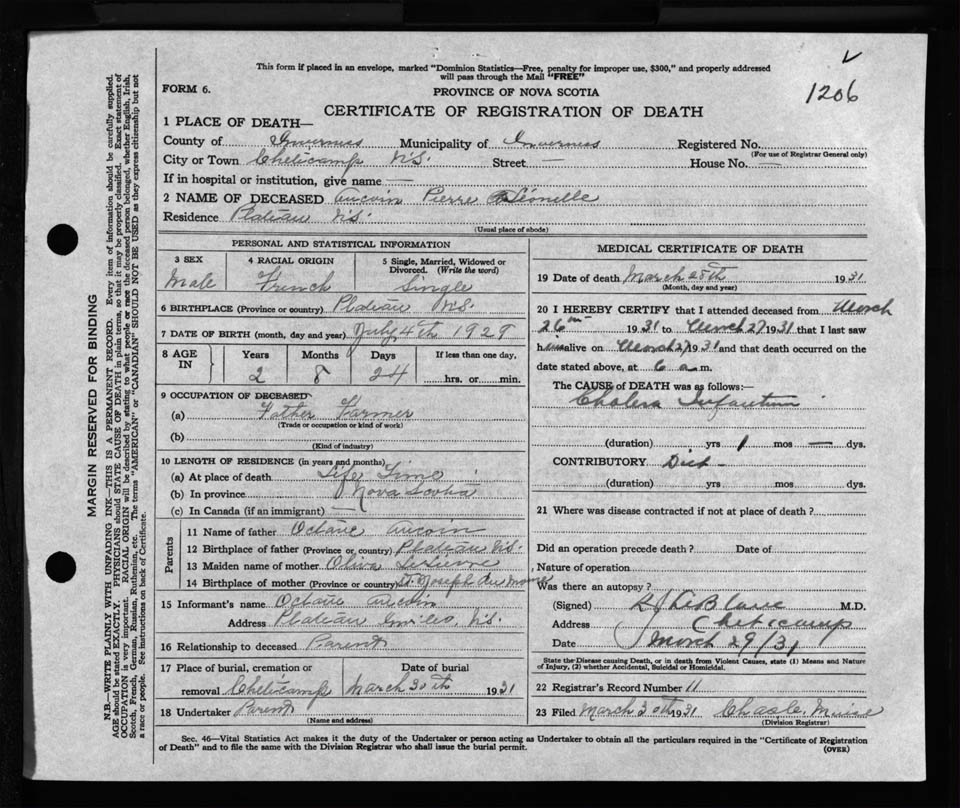 This form if placed in an envelope, marked "Dominion Statistics—Free, penalty for improper use, $300," and properly addressed
will pass through the Mail "FREE"
1206
FORM 6.
PROVINCE OF NOVA SCOTIA
CERTIFICATE OF REGISTRATION OF DEATH
1 PLACE OF DEATH—
County of Inverness Municipality of Inverness Registered No.
(For use of Registrar General only)
City or Town Cheticamp N.S. Street — House No. —
If in hospital or institution, give name —
2 NAME OF DECEASED Aucoin Pierre Léonille
Residence Plateau N.S.
(Usual place of abode)
PERSONAL AND STATISTICAL INFORMATION
3 SEX 4 RACIAL ORIGIN 5 Single, Married, Widowed or
Divorced. (Write the word)
Male French Single
6 BIRTHPLACE (Province or country) Plateau N.S.
7 DATE OF BIRTH (month, day and year) July 4th 1929
8 AGE IN Years Months Days If less than one day,
2 8 24 hrs. or min.
9 OCCUPATION OF DECEASED
(a) Father Farmer
(Trade or occupation or kind of work)
(b)
(Kind of industry)
10 LENGTH OF RESIDENCE (in years and months)
(a) At place of death Life Time
(b) In province Nova Scotia
(c) In Canada (if an immigrant) —
Parents
11 Name of father Octave Aucoin
12 Birthplace of father (Province or country) Plateau N.S.
13 Maiden name of mother Oliva
14 Birthplace of mother (Province or country) St. Joseph du Moine
15 Informant's name Octave Aucoin
Address Plateau N.S.
16 Relationship to deceased Parent
17 Place of burial, cremation or Date of burial
removal Cheticamp March 30th 1931
18 Undertaker Parent
(Name and address)
MEDICAL CERTIFICATE OF DEATH
19 Date of death March 28th 1931
(Month, day and year)
20 I HEREBY CERTIFY that I attended deceased from March
26 1931 to March 27 1931 that I last saw
him alive on March 27 1931 and that death occurred on the
date stated above, at 6 a.m.
The CAUSE of DEATH was as follows:—
Cholera Infantum
(duration) yrs 1 mos — dys.
CONTRIBUTORY Diet
(duration) yrs mos dys.
21 Where was disease contracted if not at place of death?
Did an operation precede death? Date of
Nature of operation
Was there an autopsy?
(Signed) LeBlanc M.D.
Address Cheticamp
Date March 29/31
State the Disease causing Death, or in death from Violent Causes, state (1) Means and Nature
of Injury, (2) whether Accidental, Suicidal or Homicidal.
22 Registrar's Record Number 11
23 Filed March 30th 1931 Chas. L. Muise
(Division Registrar)
Sec. 46—Vital Statistics Act makes it the duty of the Undertaker or person acting as Undertaker to obtain all the particulars required in the "Certificate of Registration
of Death" and to file the same with the Division Registrar who shall issue the burial permit.
(OVER)
MARGIN RESERVED FOR BINDING
N.B.—WRITE PLAINLY WITH UNFADING INK—THIS IS A PERMANENT RECORD. Every item of information should be carefully supplied.
AGE should be stated EXACTLY. PHYSICIANS should STATE CAUSE OF DEATH in plain terms, so that it may be properly classified. Exact statement of
OCCUPATION is very important. RACIAL ORIGIN will be described by stating to what people or race the deceased person belonged, whether English, Irish,
Scotch, French, German, Russian, Ruthenian, etc. The terms "AMERICAN" or "CANADIAN" SHOULD NOT BE USED as they express citizenship but not
a race or people. See instructions on back of Certificate.